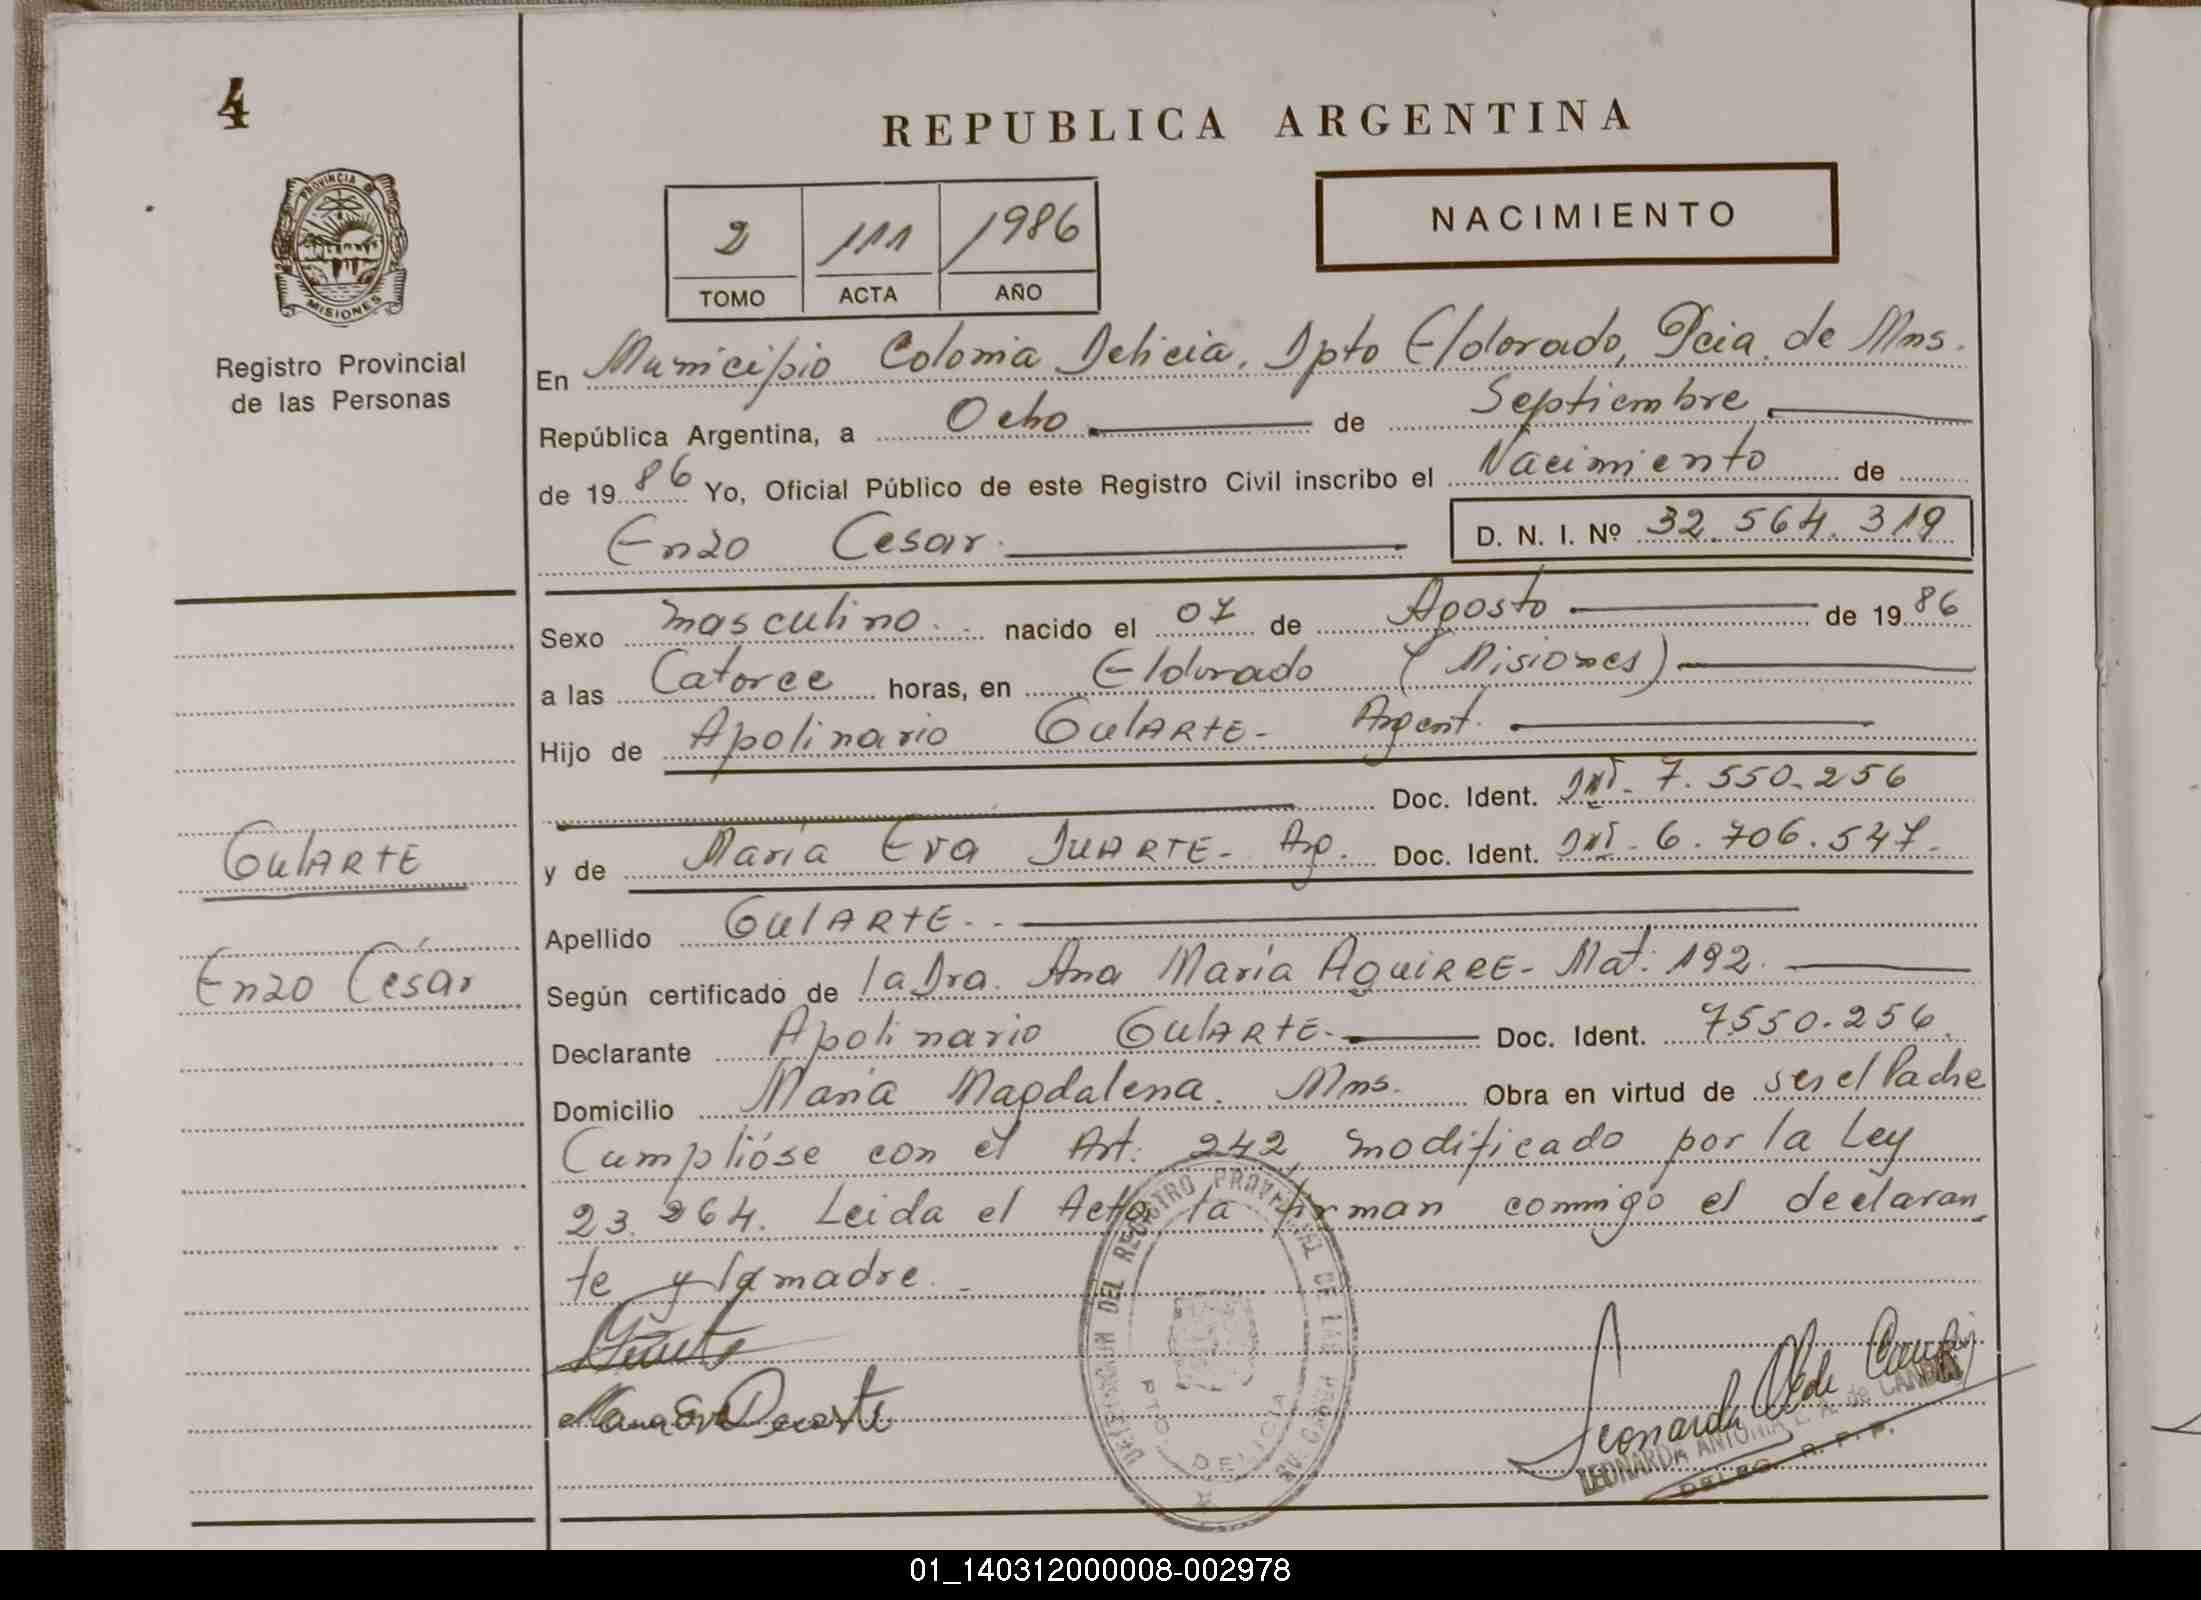 4
REPUBLICA ARGENTINA
NACIMIENTO
2 111 1986
TOMO ACTA AÑO
PROVINCIA DE MISIONES
Registro Provincial
de las Personas
En Municipio Colonia Delicia, Dpto Eldorado, Pcia. de Mns.
República Argentina, a Ocho de Septiembre
de 1986 Yo, Oficial Público de este Registro Civil inscribo el Nacimiento de
Enzo Cesar. D. N. I. Nº 32.564.319
Sexo masculino. nacido el 07 de Agosto de 1986
a las Catorce horas, en Eldorado (Misiones)
Hijo de Apolinario GulARTE- Argent.
Doc. Ident. 7.550.256
y de María Eva DUARTE- Arg. Doc. Ident. 6.706.547.
GulARTE
Apellido GulARTE.
Enzo César
Según certificado de la Dra. Ana María AguiRRE- Mat: 192.
Declarante Apolinario GulARTE- Doc. Ident. 7550.256.
Domicilio María Magdalena. Mns. Obra en virtud de ser el Padre
Cumplióse con el Art. 242, modificado por la Ley
23.264. Leida el Acta la firman conmigo el declaran_
te y la madre.
DELEGACION DEL REGISTRO PROVINCIAL DE LAS PERSONAS
PTO. DELICIA
LEONARDA ANTONIA
DELEG. R. P. P.
01_140312000008-002978